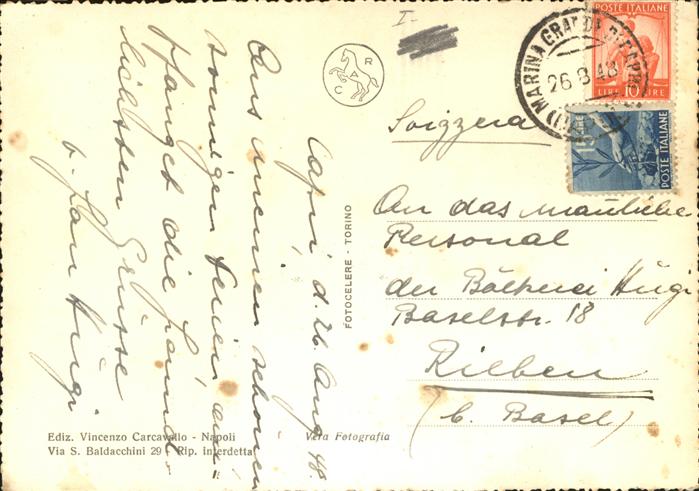 I.
R
A
C
Capri, d. 26. Aug. 48.
Aus meinen schönen
sonnigen Ferien aus
pfanget die
lichsten Grüsse
v. Jan Hügi
MARINA GRANDE DI CAPRI
26 8 48
POSTE ITALIANE
LIRE 10 LIRE
15
POSTE ITALIANE
Svizzera
An das männliche
Personal
der Bäckerei Hügi
Baselstr. 18
Riehen
(b. Basel)
FOTOCELERE - TORINO
Ediz. Vincenzo Carcavallo - Napoli
Via S. Baldacchini 29 - Rip. interdetta
Vera Fotografia